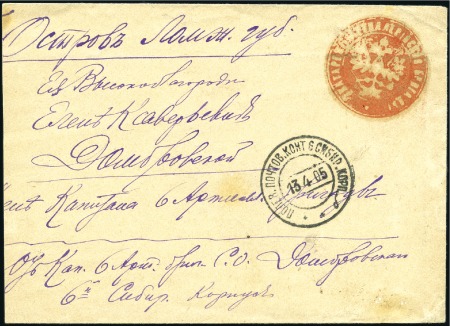 Островъ Ломж. губ.
Ея Высокоблагородію
Еленѣ Ксаверьевнѣ
Домбровской
Капитана 6 Артил. бригады
ПОЛЕВ. ПОЧТОВ. КОНТ. 6 СИБИР. КОРП.
13.4.05
Отъ Кап. 6 Арт. бриг. С. О. Домбровскаго
6го Сибир. Корпуса